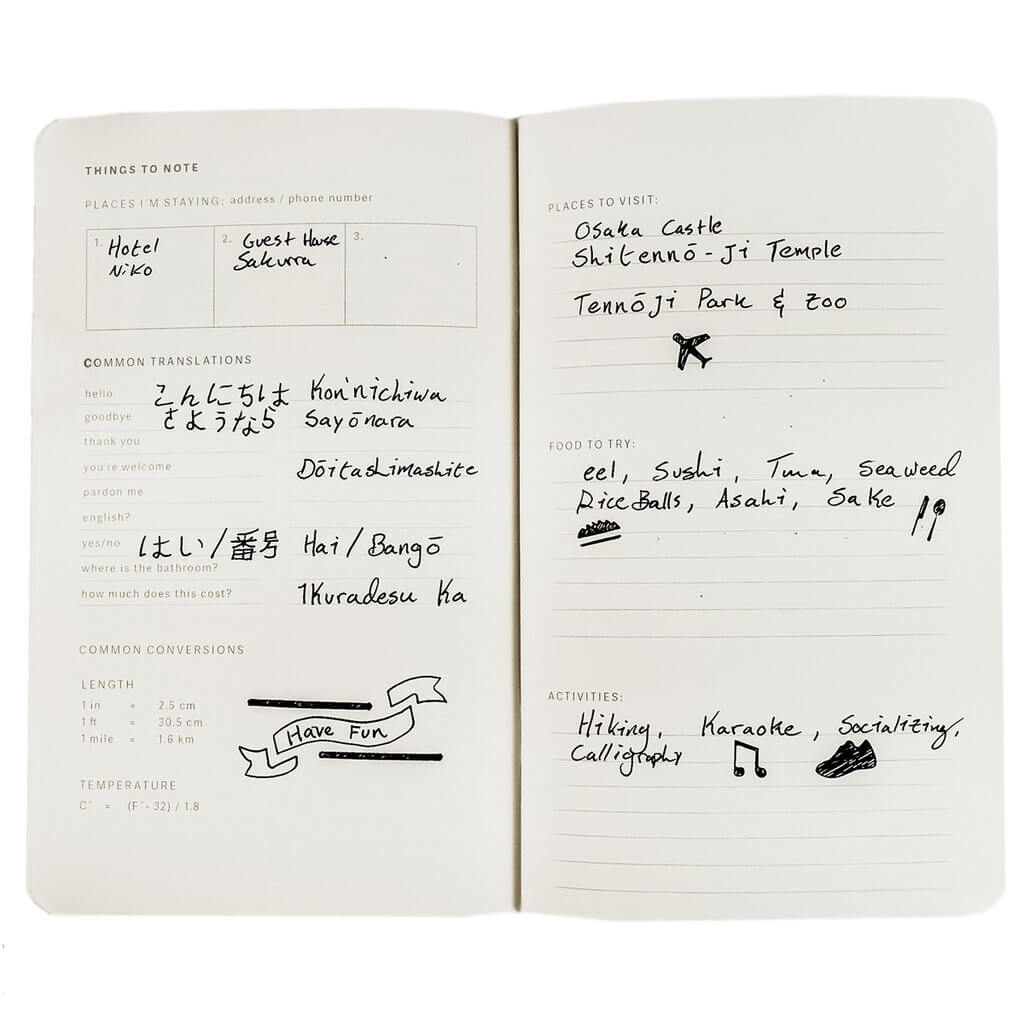 THINGS TO NOTE
PLACES I'M STAYING: address / phone number
1. Hotel
Niko
2. Guest House
Sakurra
3.
COMMON TRANSLATIONS
hello こんにちは Kon'nichiwa
goodbye さようなら Sayōnara
thank you
you're welcome Dōitashimashite
pardon me
english?
yes/no はい/番号 Hai/Bangō
where is the bathroom?
how much does this cost? Ikuradesu Ka
COMMON CONVERSIONS
LENGTH
1 in = 2.5 cm
1 ft = 30.5 cm
1 mile = 1.6 km
Have Fun
TEMPERATURE
C° = (F°- 32) / 1.8
PLACES TO VISIT:
Osaka Castle
Shitennō-Ji Temple
TennōJi Park & Zoo
FOOD TO TRY:
eel, Sushi, Tuna, Seaweed
Rice Balls, Asahi, Sake
ACTIVITIES:
Hiking, Karaoke, Socializing,
Calligraphy